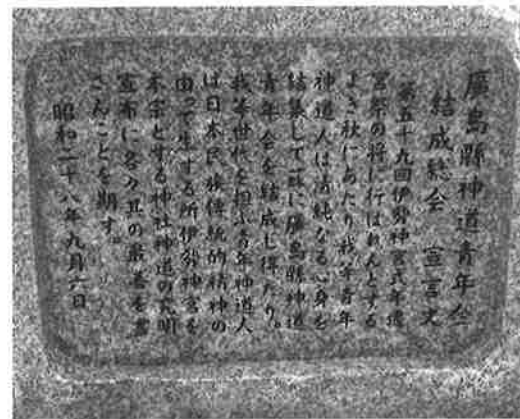 廣島縣神道青年会
結成総会 宣言文
第五十九回伊勢神宮式年遷
宮祭の将に行はれんとする
よき秋にあたり我等青年
神道人は清純なる心身を
結集して茲に廣島縣神道
青年会を結成し得たり。
我等世代を担ふ青年神道人
は日本民族傳統的精神の
由つて生ずる所伊勢神宮を
本宗とする神社神道の究明
宣布に各々其の最善を尽
さんことを期す。
昭和二十八年九月六日